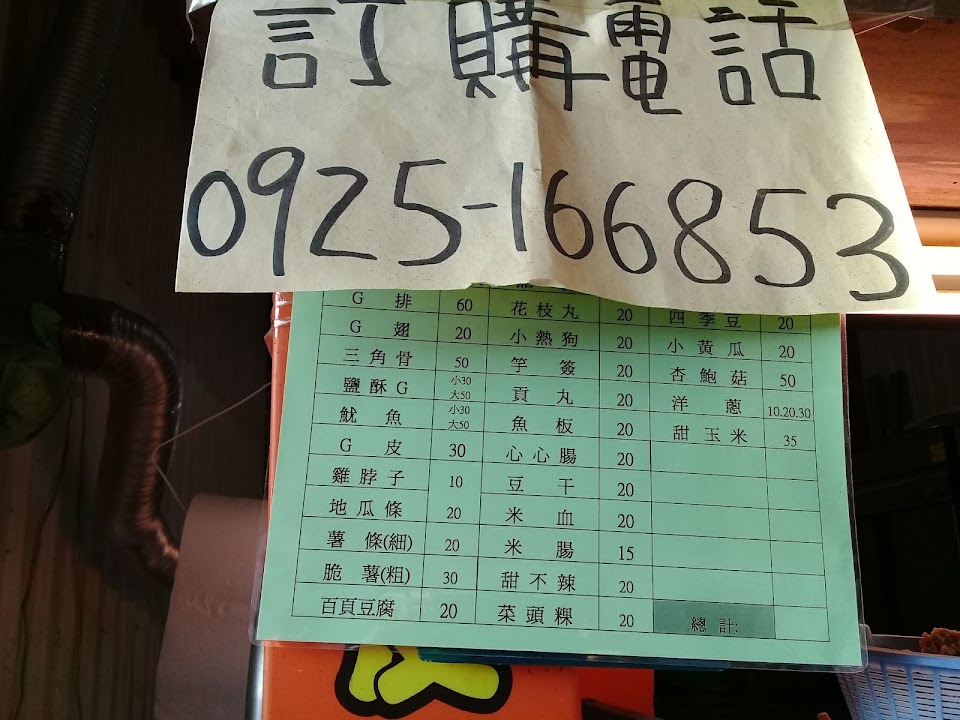 訂購電話
0925-166853
G 排 60 花枝丸 20 四季豆 20
G 翅 20 小熱狗 20 小黃瓜 20
三角骨 50 竽簽 20 杏鮑菇 50
鹽酥G 小30 大50 貢丸 20 洋蔥 10.20.30
魷魚 小30 大50 魚板 20 甜玉米 35
G 皮 30 心心腸 20
雞脖子 10 豆干 20
地瓜條 20 米血 20
薯條(細) 20 米腸 15
脆薯(粗) 30 甜不辣 20
百頁豆腐 20 菜頭粿 20 總計: